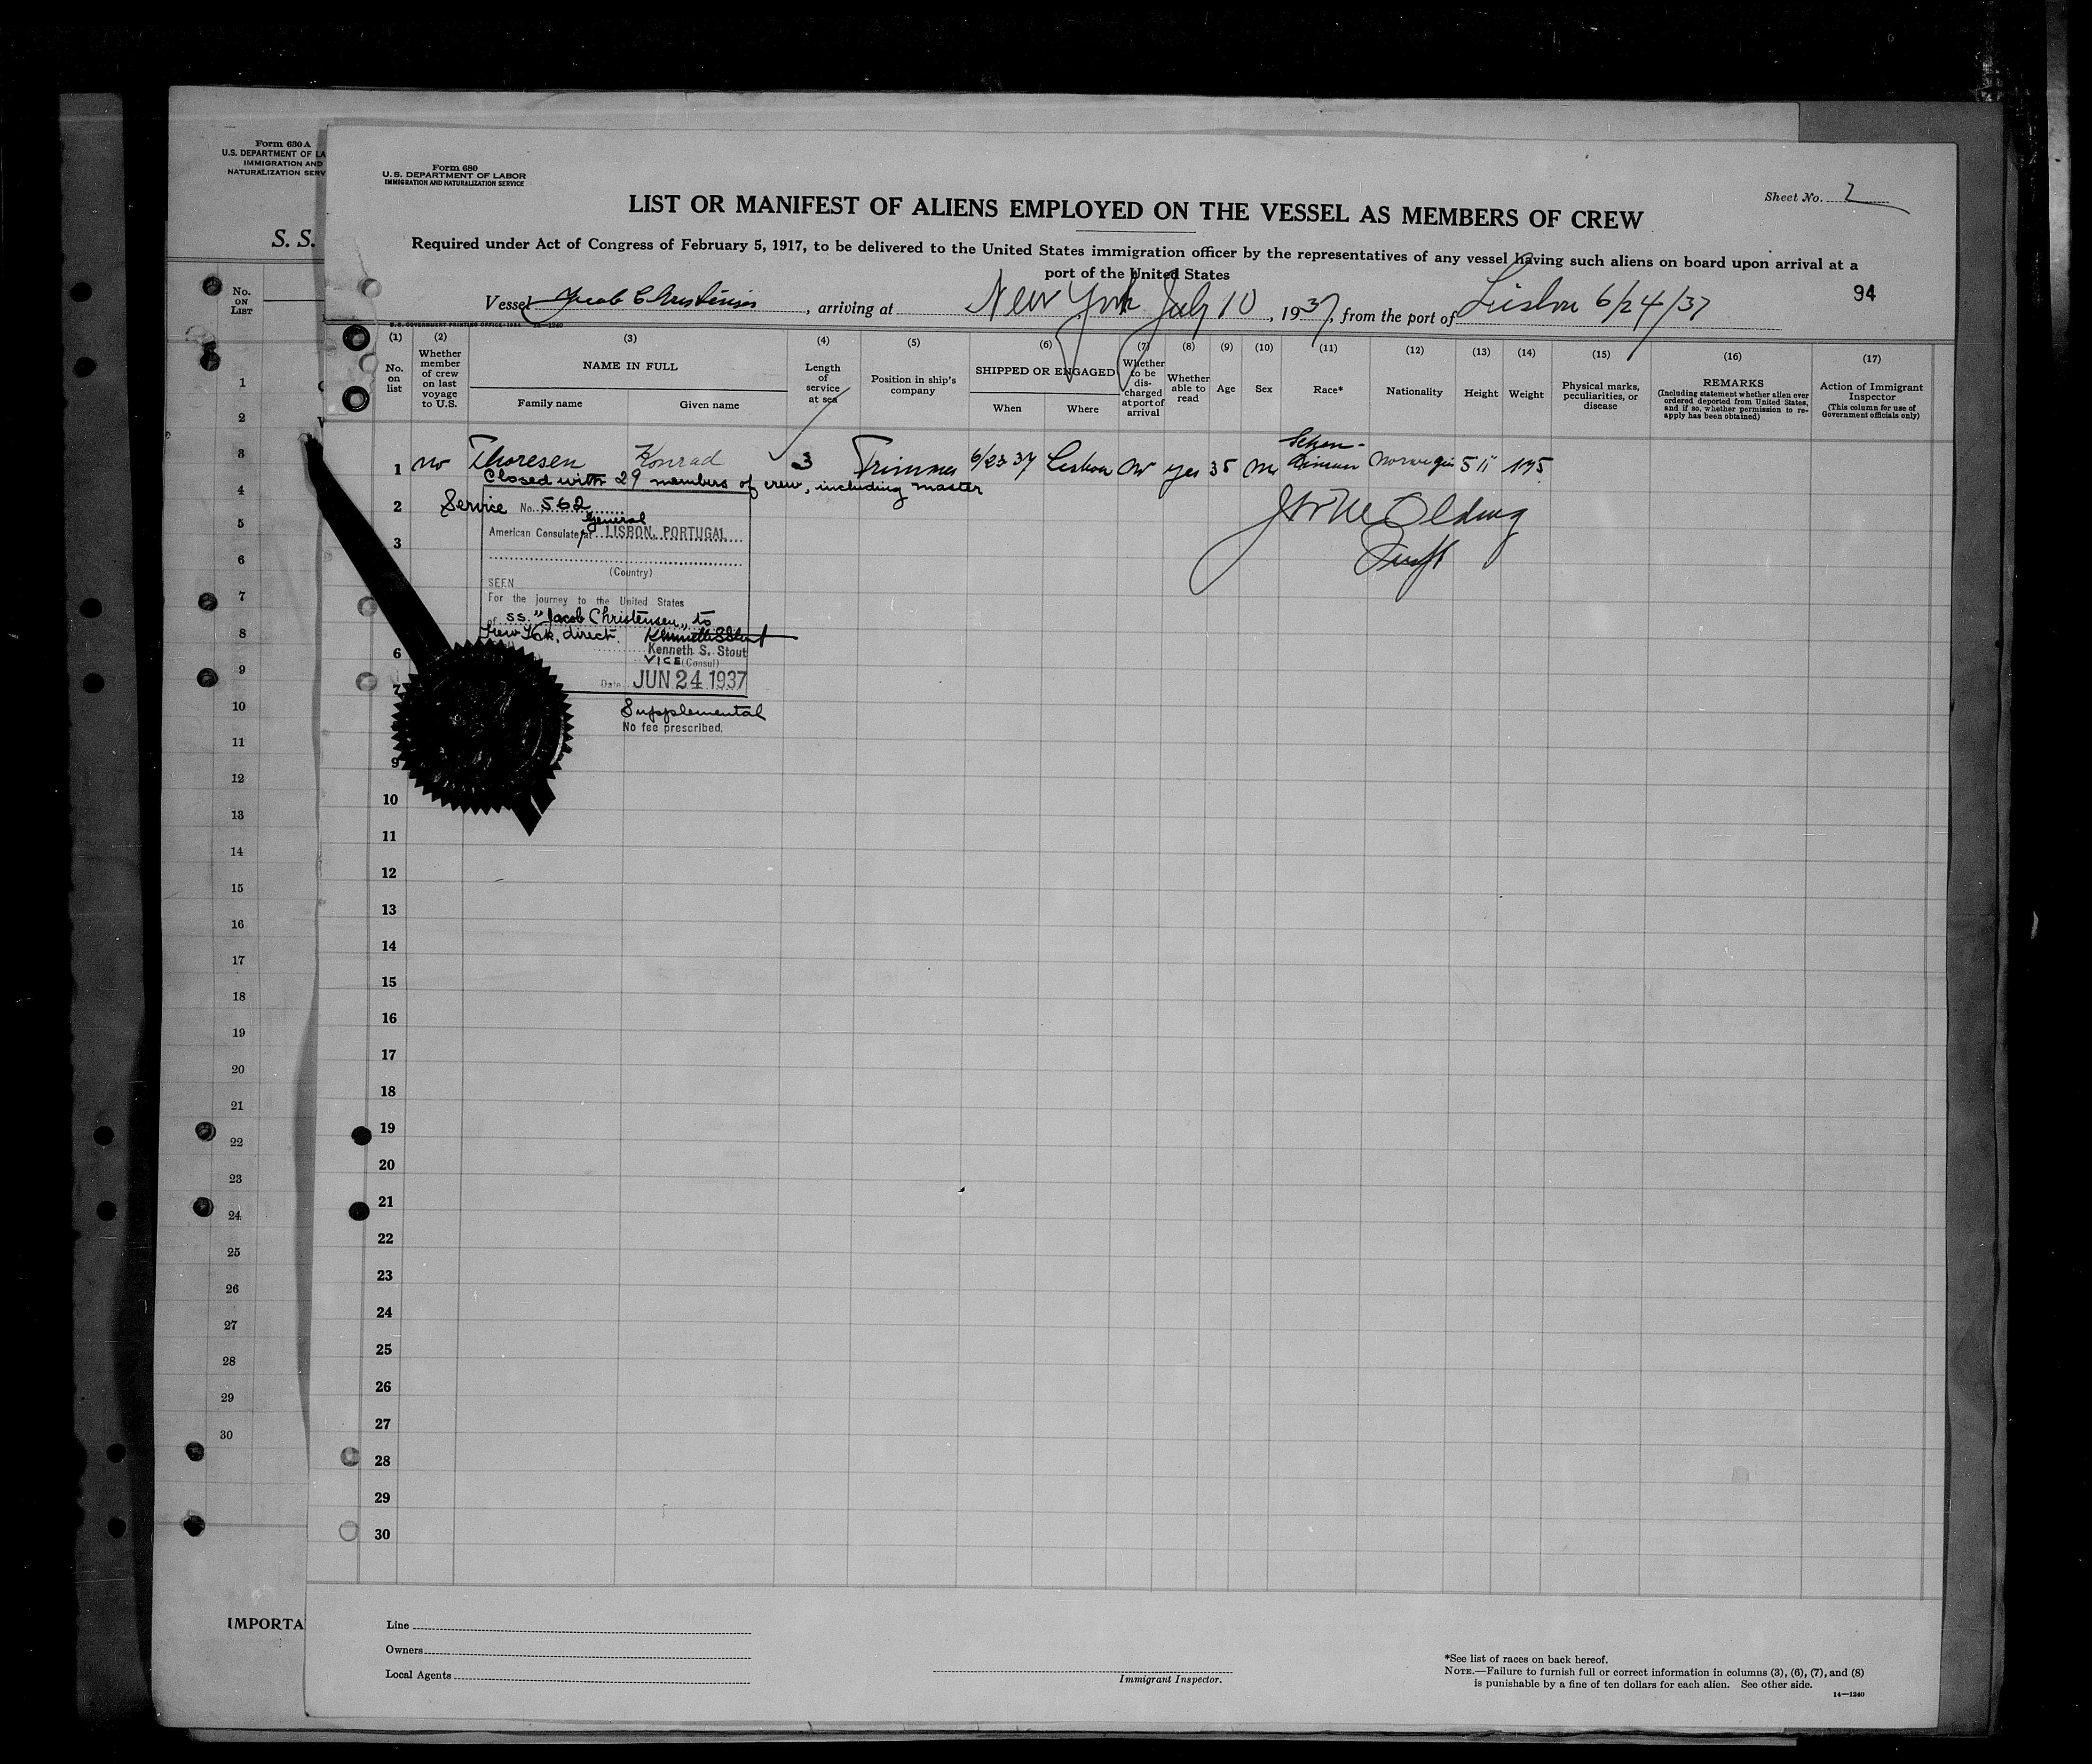 Form 630 A
U.S. DEPARTMENT OF LA
IMMIGRATION AND
NATURALIZATION SERV
S. S.
No.
ON
LIST
1
2
3
4
5
6
7
8
9
10
11
12
13
14
15
16
17
18
19
20
21
22
23
24
25
26
27
28
29
30
IMPORTA
Form 680
U. S. DEPARTMENT OF LABOR
IMMIGRATION AND NATURALIZATION SERVICE
Sheet No. 2
LIST OR MANIFEST OF ALIENS EMPLOYED ON THE VESSEL AS MEMBERS OF CREW
Required under Act of Congress of February 5, 1917, to be delivered to the United States immigration officer by the representatives of any vessel having such aliens on board upon arrival at a
port of the United States
94
Vessel Jacob Christensen, arriving at New York July 10, 1937, from the port of Lisbon 6/24/37
U. S. GOVERNMENT PRINTING OFFICE: 1934 14—1240
(1) (2) (3) (4) (5) (6) (7) (8) (9) (10) (11) (12) (13) (14) (15) (16) (17)
No. on list
Whether member of crew on last voyage to U.S.
NAME IN FULL
Family name Given name
Length of service at sea
Position in ship's company
SHIPPED OR ENGAGED
When Where
Whether to be discharged at port of arrival
Whether able to read
Age
Sex
Race*
Nationality
Height
Weight
Physical marks, peculiarities, or disease
REMARKS
(Including statement whether alien ever ordered deported from United States, and if so, whether permission to reapply has been obtained)
Action of Immigrant Inspector
(This column for use of Government officials only)
1 no Thoresen Konrad 3 Trimmer 6/23 37 Lisbon no yes 35 m Norwegian 5 11 175
Closed with 29 members of crew, including master
2 Service No. 562
General
American Consulate at LISBON, PORTUGAL
3
(Country)
SEEN
For the journey to the United States
of ss. "Jacob Christensen" to
New York, direct. Kenneth S. Stout
6 Kenneth S. Stout
VICE (Consul)
7 Date JUN 24 1937
Supplemental
No fee prescribed.
9
10
11
12
13
14
15
16
17
18
19
20
21
22
23
24
25
26
27
28
29
30
Line
Owners
Local Agents
Immigrant Inspector.
*See list of races on back hereof.
NOTE.—Failure to furnish full or correct information in columns (3), (6), (7), and (8)
is punishable by a fine of ten dollars for each alien. See other side.
14—1240